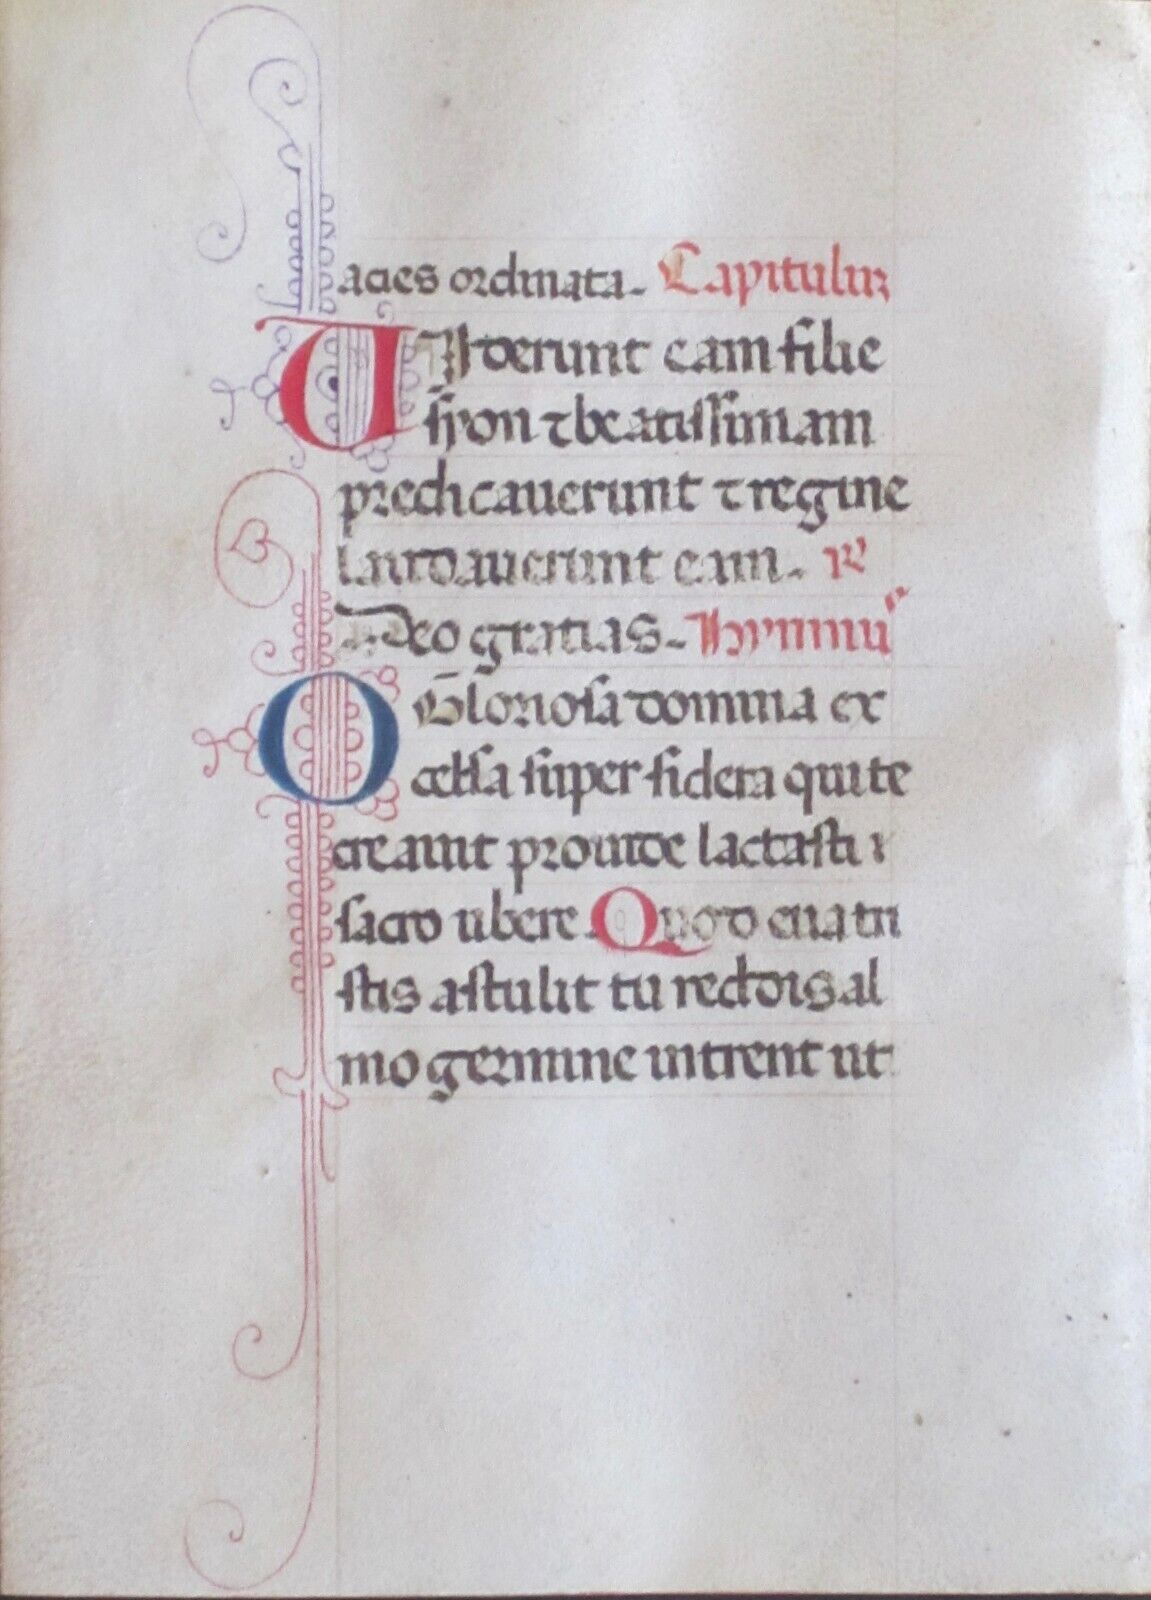 acies ordinata. Capitulũ
VIderunt eam filie
syon ⁊ beatissimam
predicaverunt ⁊ regine
laudaverunt eam. ℟
Deo gratias. Hymnus
O Gloriosa domina ex
celsa super sidera qui te
creavit provide lactasti
sacro ubere. Quod eva tri
stis astulit tu reddis al
mo germine intrent ut